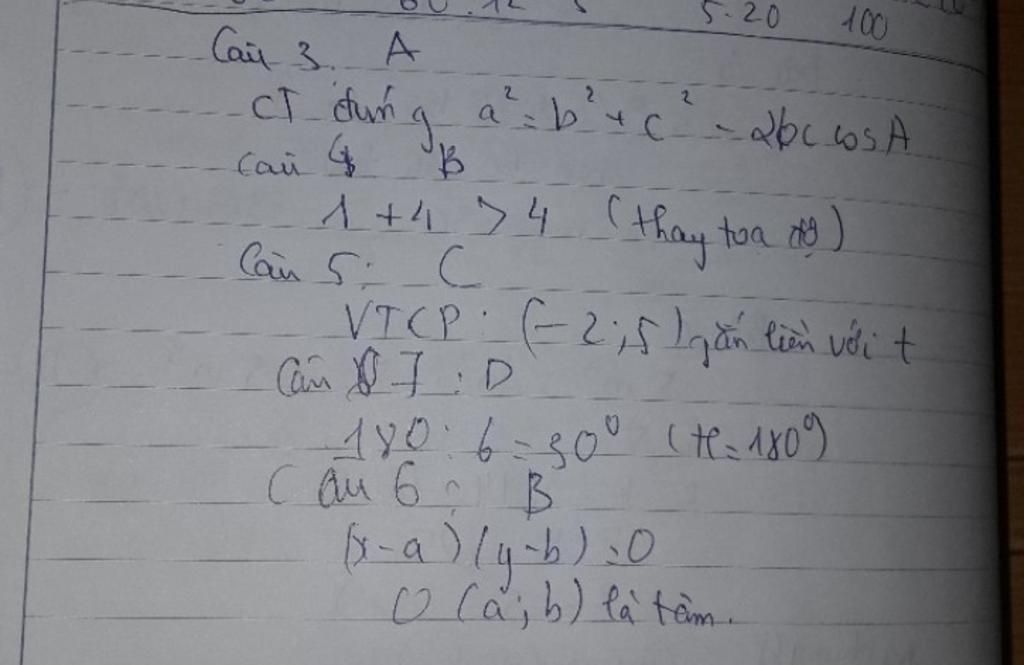 60.12 5 5.20 100
Câu 3. A
CT đúng a² = b² + c² - 2bc cosA
Câu 4 B
1 + 4 > 4 (thay toạ độ)
Câu 5: C
VTCP: (-2;5) gắn liền với t
Câu 7: D
180:6 = 30⁰ (π=180⁰)
Câu 6: B
(x-a)(y-b)=0
O (a;b) là tâm.